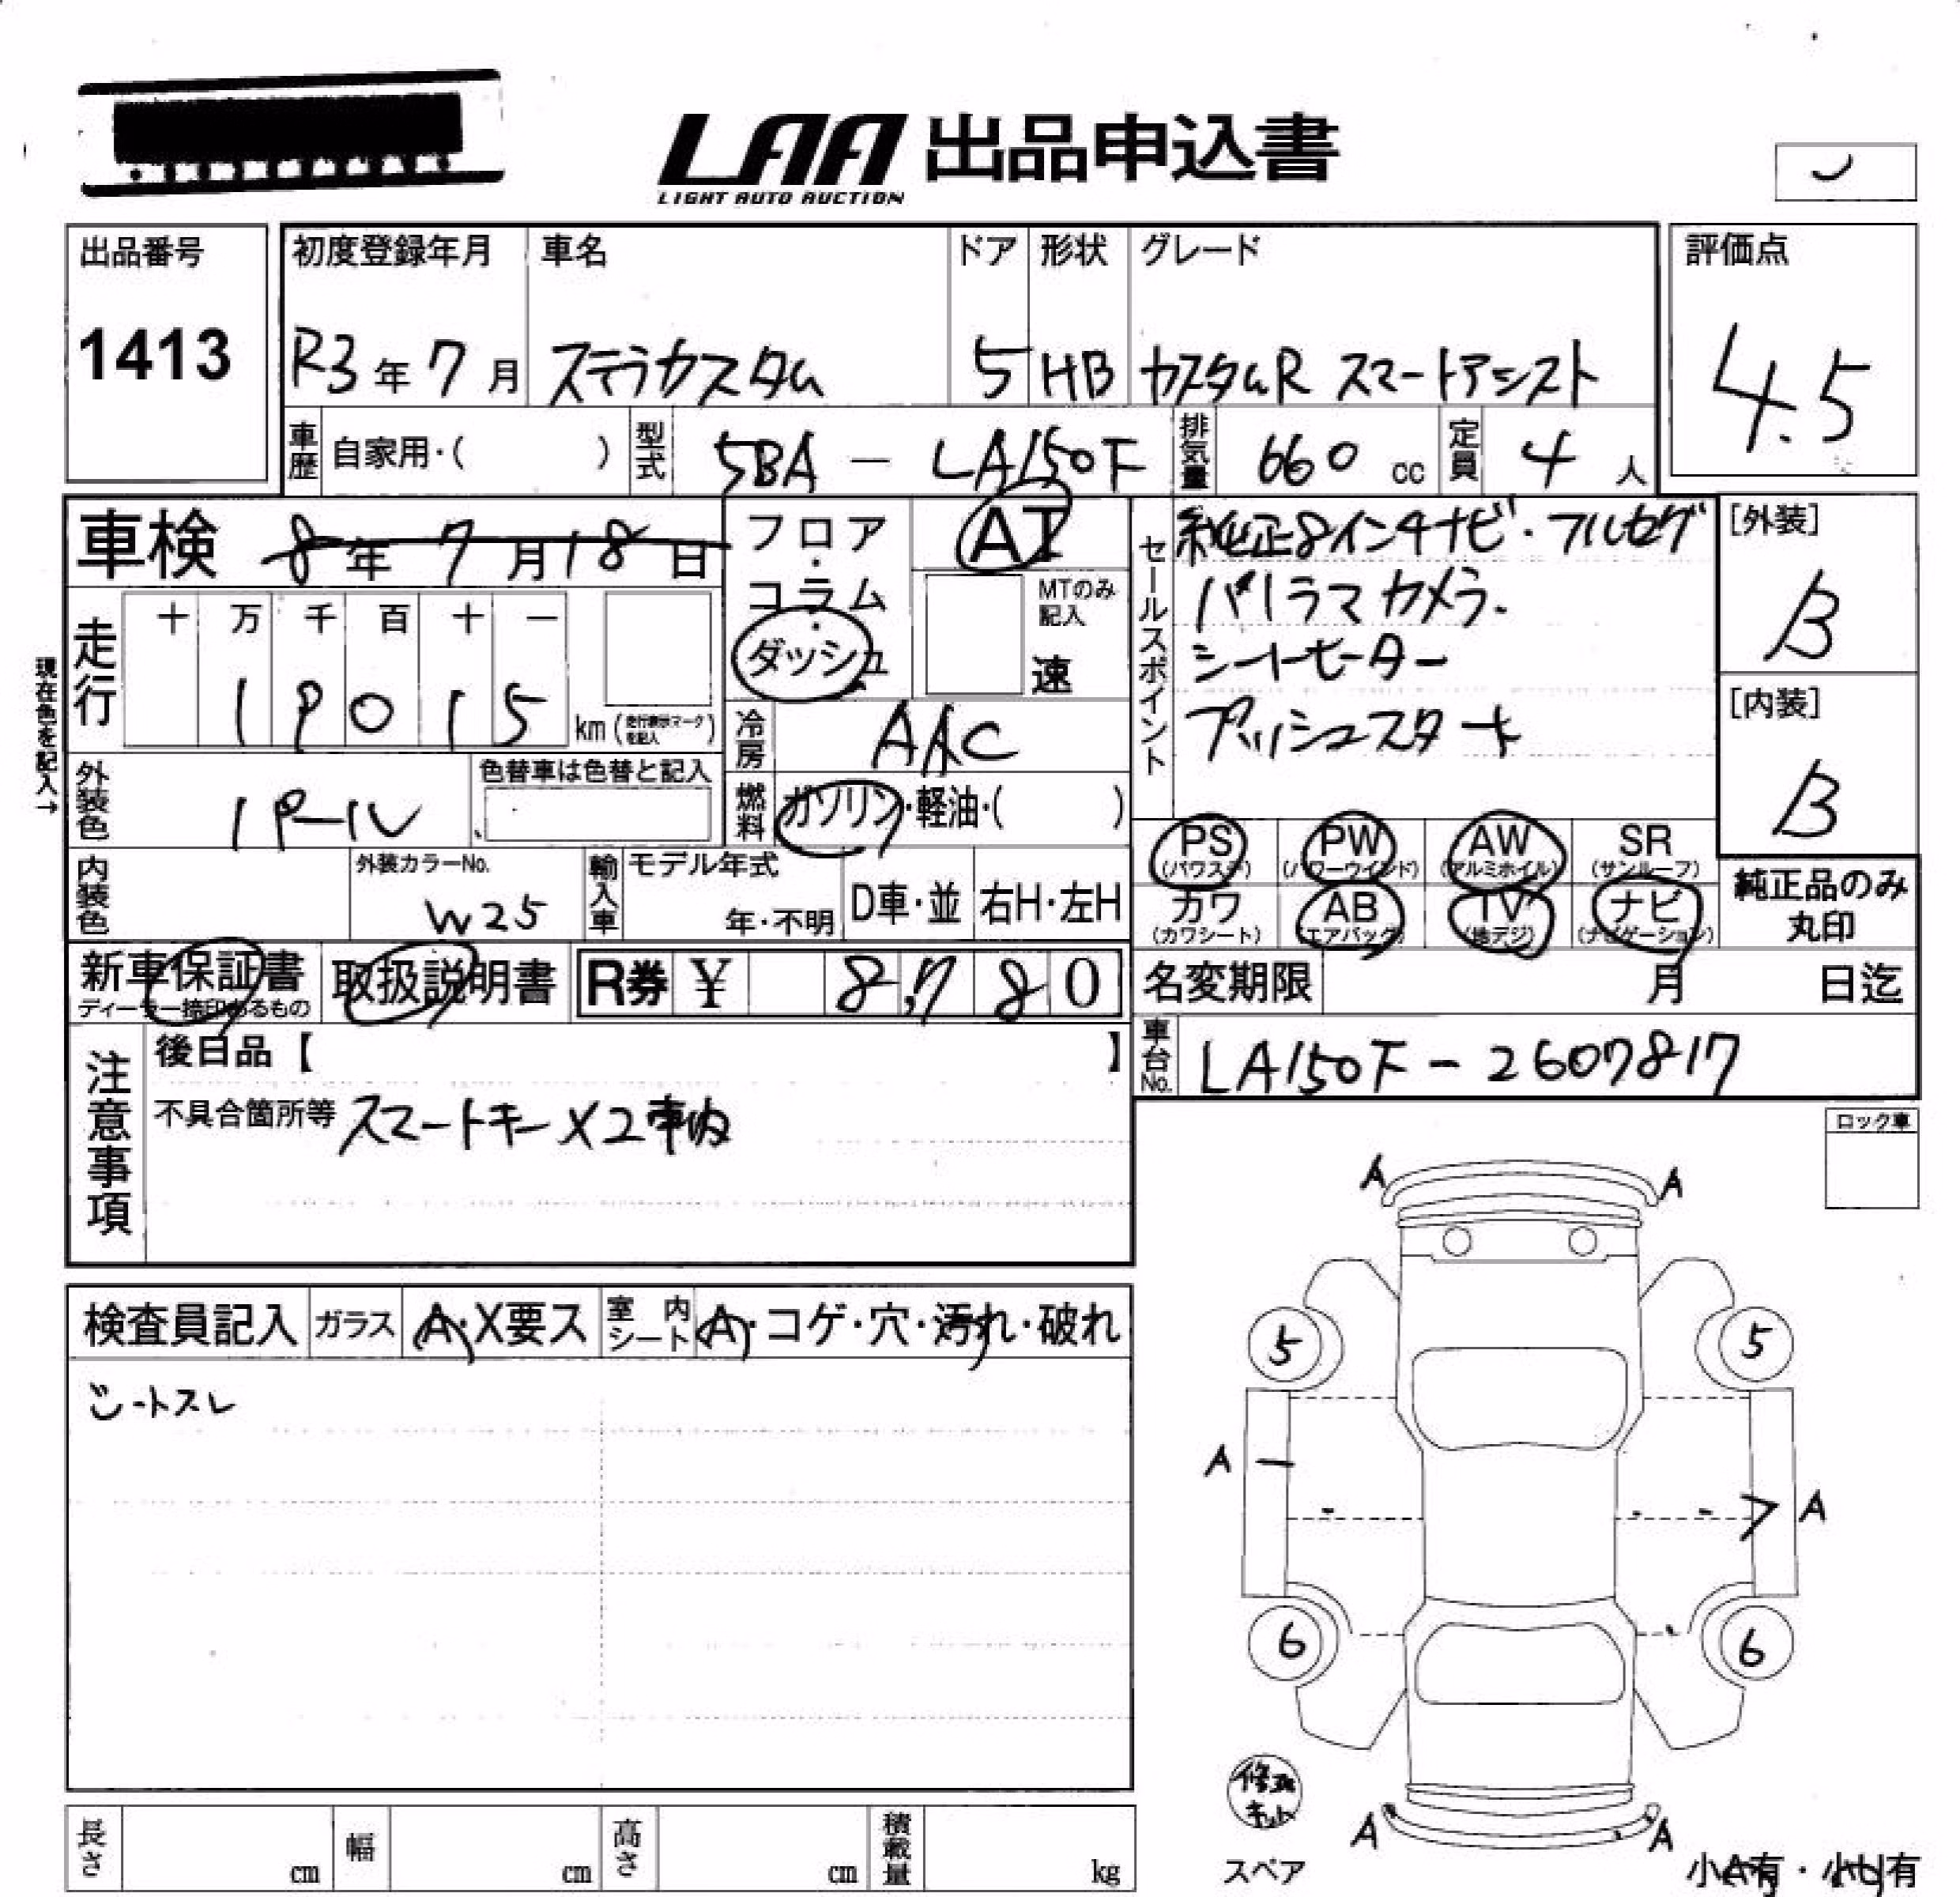 LAA 出品申込書
LIGHT AUTO AUCTION
出品番号
1413
初度登録年月
R3年7月
車名
ステラカスタム
ドア
5
形状
HB
グレード
カスタムR スマートアシスト
評価点
4.5
車歴 自家用・( )
型式 5BA - LA150F
排気量 660 cc
定員 4 人
車検 8年7月18日
フロア・コラム・ダッシュ
AT
MTのみ記入
速
セールスポイント
純正8インチナビ・フルセグ
パノラマカメラ.
シートヒーター
プッシュスタート
[外装]
B
[内装]
B
現在色を記入→
走行 十 万 千 百 十 一
19015
km (走行表示マークを記入)
冷房 AAC
外装色 パール
色替車は色替と記入
燃料 ガソリン・軽油・( )
PS (パワステ) PW (パワーウインド) AW (アルミホイル) SR (サンルーフ)
カワ (カワシート) AB (エアバック) TV (地デジ) ナビ (ナビゲーション)
純正品のみ
丸印
内装色
外装カラーNo.
W25
輸入車 モデル年式
年・不明
D車・並 右H・左H
新車保証書
ディーラー捺印あるもの
取扱説明書
R券 ¥ 8,780
名変期限 月 日迄
車台No. LA150F-2607817
注意事項
後日品【 】
不具合箇所等 スマートキーX2車内
ロック車
検査員記入 ガラス A・X要ス 室内シート A・コゲ・穴・汚れ・破れ
シートスレ
A A
5 5
A A
6 6
修理キット
スペア
A A
小A有・小U有
長さ cm 幅 cm 高さ cm 積載量 kg